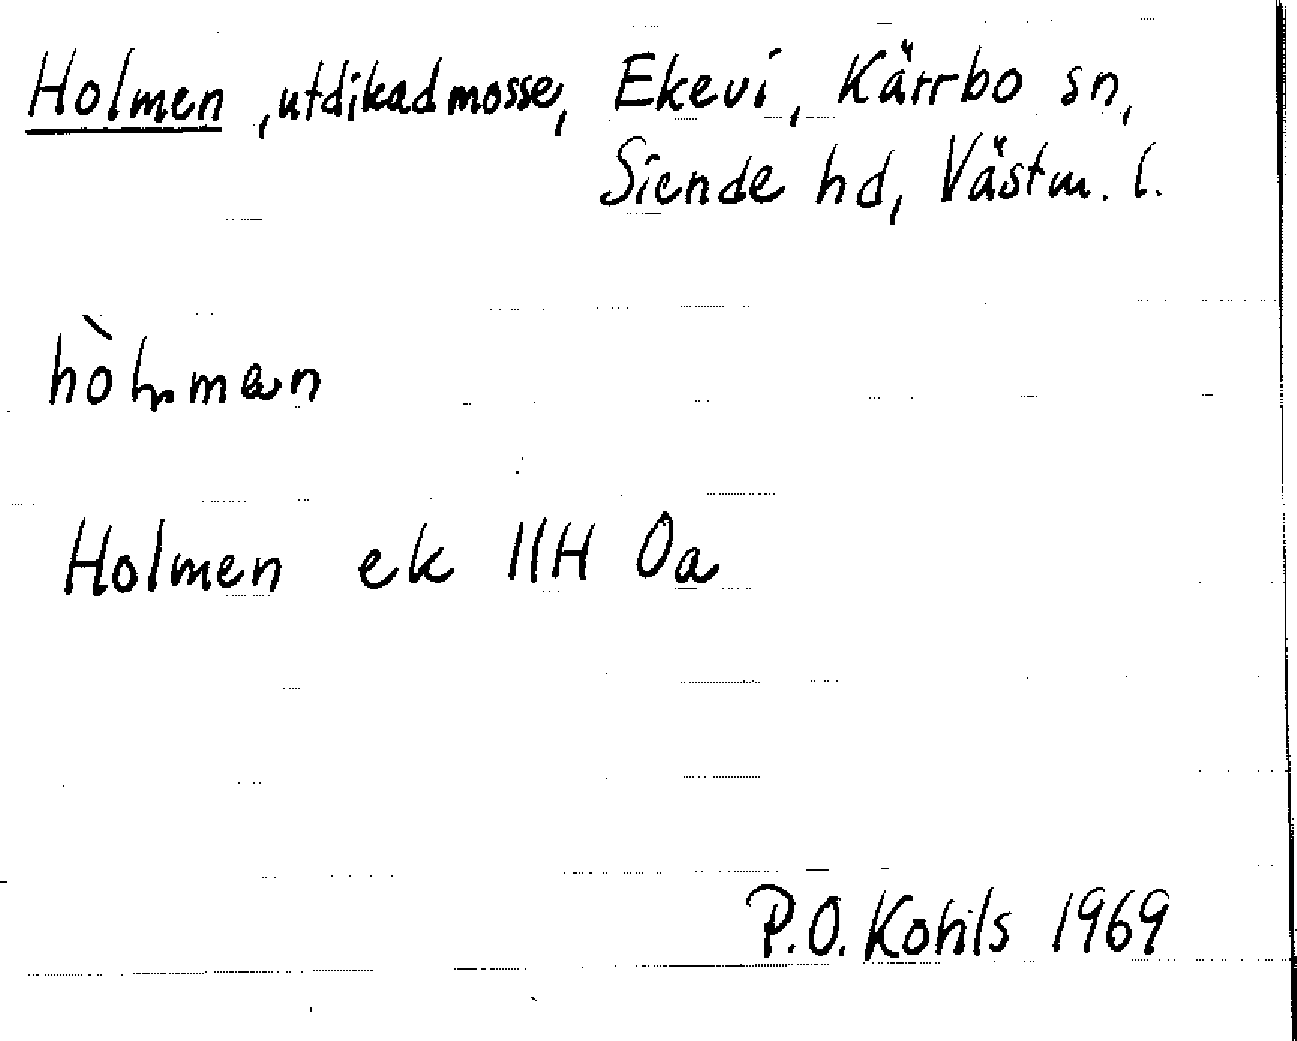 Holmen, utdikad mosse, Ekevi, Kärrbo sn,
Siende hd, Västm. l.
Holmen ek 11H 0a
P.O. Kohls 1969